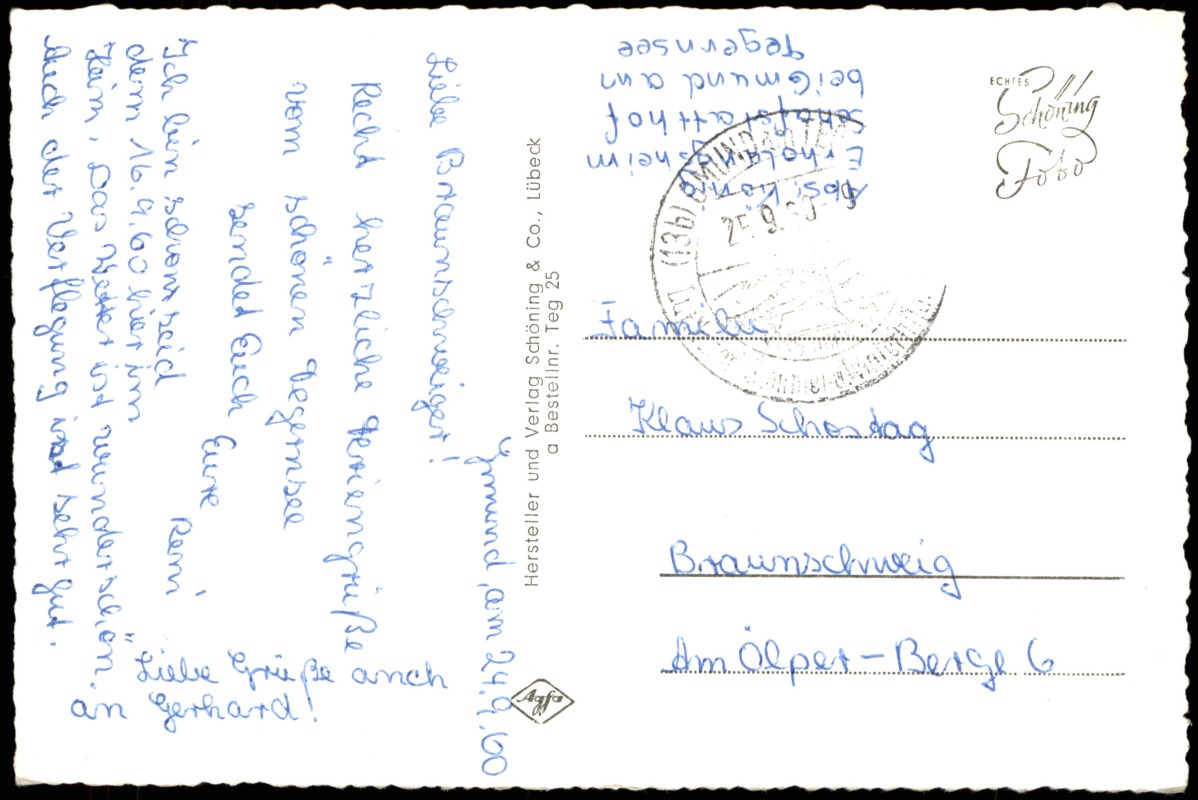 Gmund, am 24.9.60
Liebe Braunschweiger!
Recht herzliche Feriengrüße
vom schönen Tegernsee
sendet Euch Eure
Reni
Ich bin schon seid
dem 16.9.60 hier im
Heim, Das Wetter ist wunderschön.
Auch der Verflegung ist sehr gut.
Liebe Grüße auch
an Gerhard!
Hersteller und Verlag Schöning & Co., Lübeck
a Bestellnr. Teg 25
Agfa
Abs. König
Erholungsheim
Schafstatthof
bei Gmund am
Tegernsee
ECHTES
Schöning
Foto
(13b) GMUND
25.9.60-9
Familie
Klaus Schostag
Braunschweig
Am Ölper-Berge 6